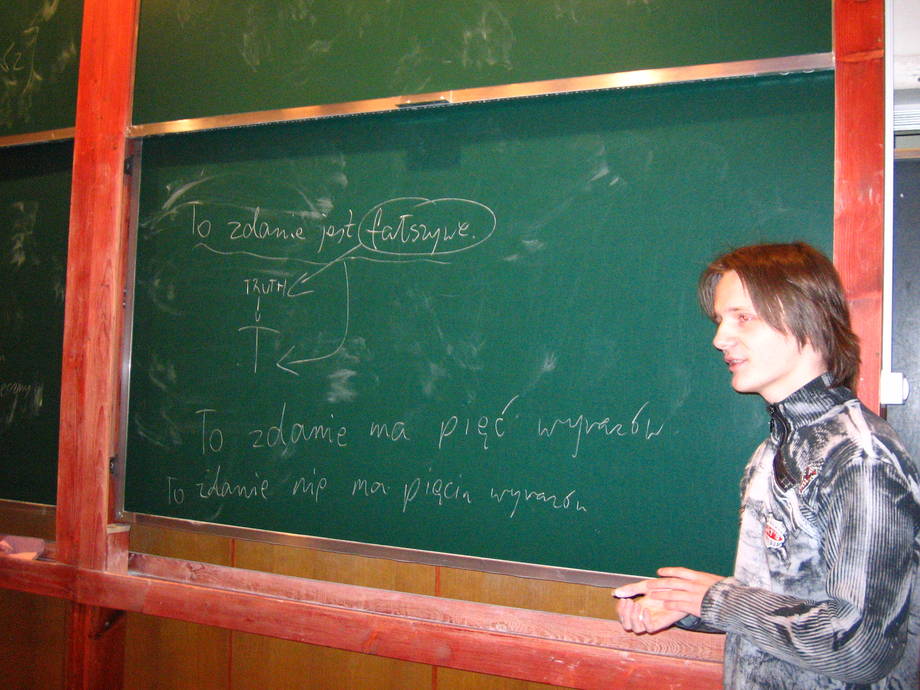 To zdanie jest fałszywe.
TRUTH
T
To zdanie ma pięć wyrazów.
To zdanie nie ma pięciu wyrazów